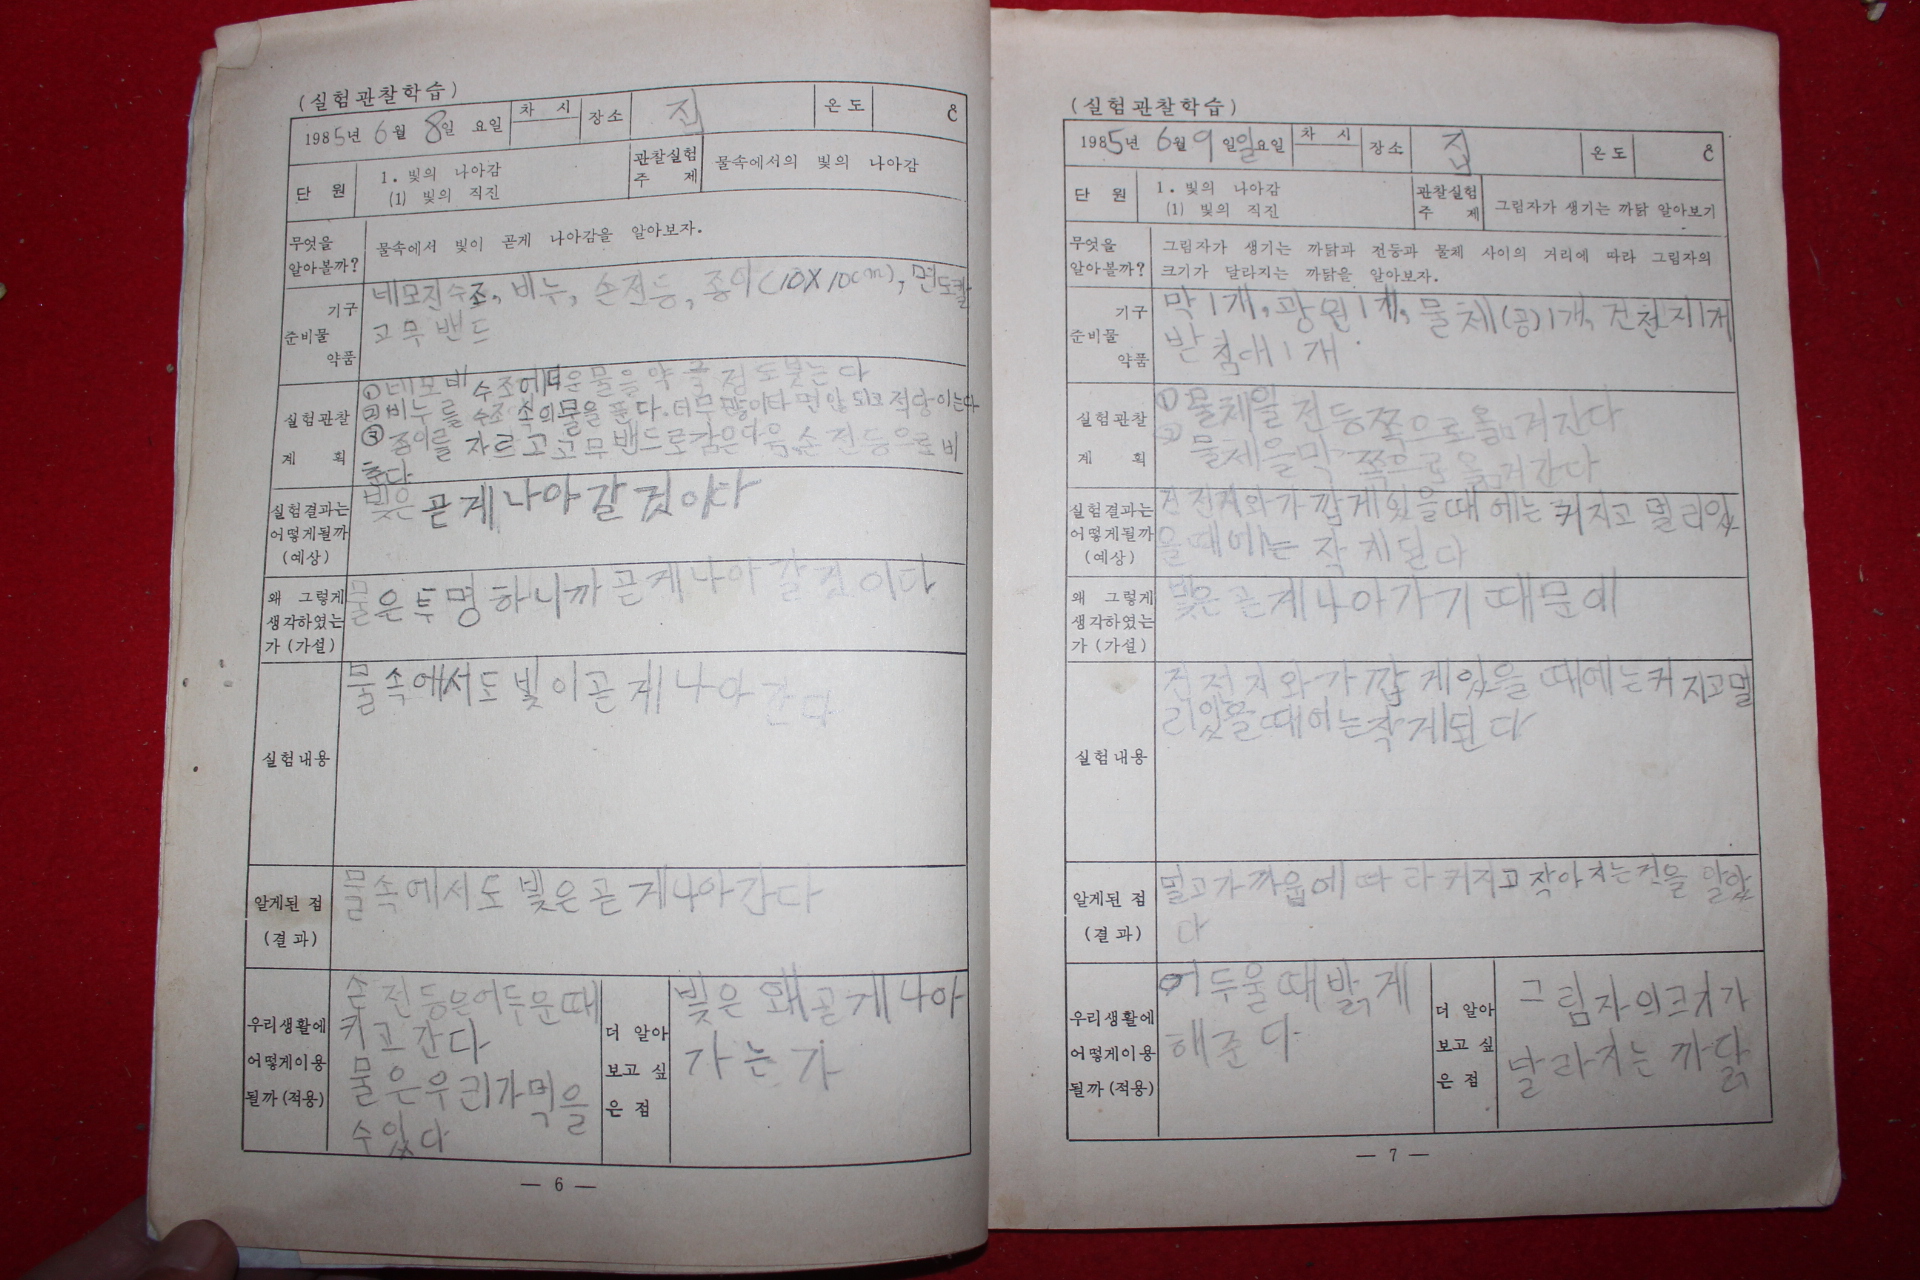 (실험관찰학습)
1985년 6월 8일 요일 차 시 장소 집 온도 ℃
단 원 1. 빛의 나아감 관찰실험 물속에서의 빛의 나아감
(1) 빛의 직진 주 제
무엇을 물속에서 빛이 곧게 나아감을 알아보자.
알아볼까?
기구 네모진수조, 비누, 손전등, 종이(10X10cm), 면도칼
준비물 고무 밴드
약품
실험관찰 ① 수조에 물을 약 붓는다
② 비누를 수조 속의 물을 푼다. 너무 많이 면 안 되고 적당
③ 종이를 자르고 고무밴드로 감은다음, 손전등으로 비
계 획 춘다
실험결과는 빛은 곧게 나아갈 것이다
어떻게될까
(예상)
왜 그렇게 물은 투명하니까 곧게 나아 갈것 이다
생각하였는
가 (가설)
물속에서도 빛이 곧게 나아 간다
실험내용
알게된 점 물속에서도 빛은 곧게 나아간다
(결과)
손전등은어두운때
우리생활에 키고 간다
어떻게이용 물은우리가먹을
될까(적용) 수있다
더 알아 빛은 왜 곧게 나아
보고 싶 가는가
은 점
— 6 —
(실험관찰학습)
1985년 6월 9일 일요일 차 시 장소 집 온도 ℃
단 원 1. 빛의 나아감 관찰실험 그림자가 생기는 까닭 알아보기
(1) 빛의 직진 주 제
무엇을 그림자가 생기는 까닭과 전등과 물체 사이의 거리에 따라 그림자의
알아볼까? 크기가 달라지는 까닭을 알아보자.
기구 막1개, 광원1개, 물체(공)1개, 건천지1개
준비물 받침대1개
약품
실험관찰 ① 물체일 전등쪽으로 옮겨간다
계 획 ② 물체을 막 쪽으로 옮겨간다
실험결과는 건전지와가깝게있을때에는 커지고 멀리있
어떻게될까 을때에는 작게된다
(예상)
왜 그렇게 빛은 곧게나아가기 때문에
생각하였는
가 (가설)
건전지와가깝게있을때에는커지고멀
리있을때에는작게된다
실험내용
알게된 점 멀고가까웁에따라커지고작아지는것을 알았
(결과) 다
우리생활에 어두울때밝게
어떻게이용 해준다
될까(적용)
더 알아 그림자의크기가
보고 싶 달라지는 까닭
은 점
— 7 —